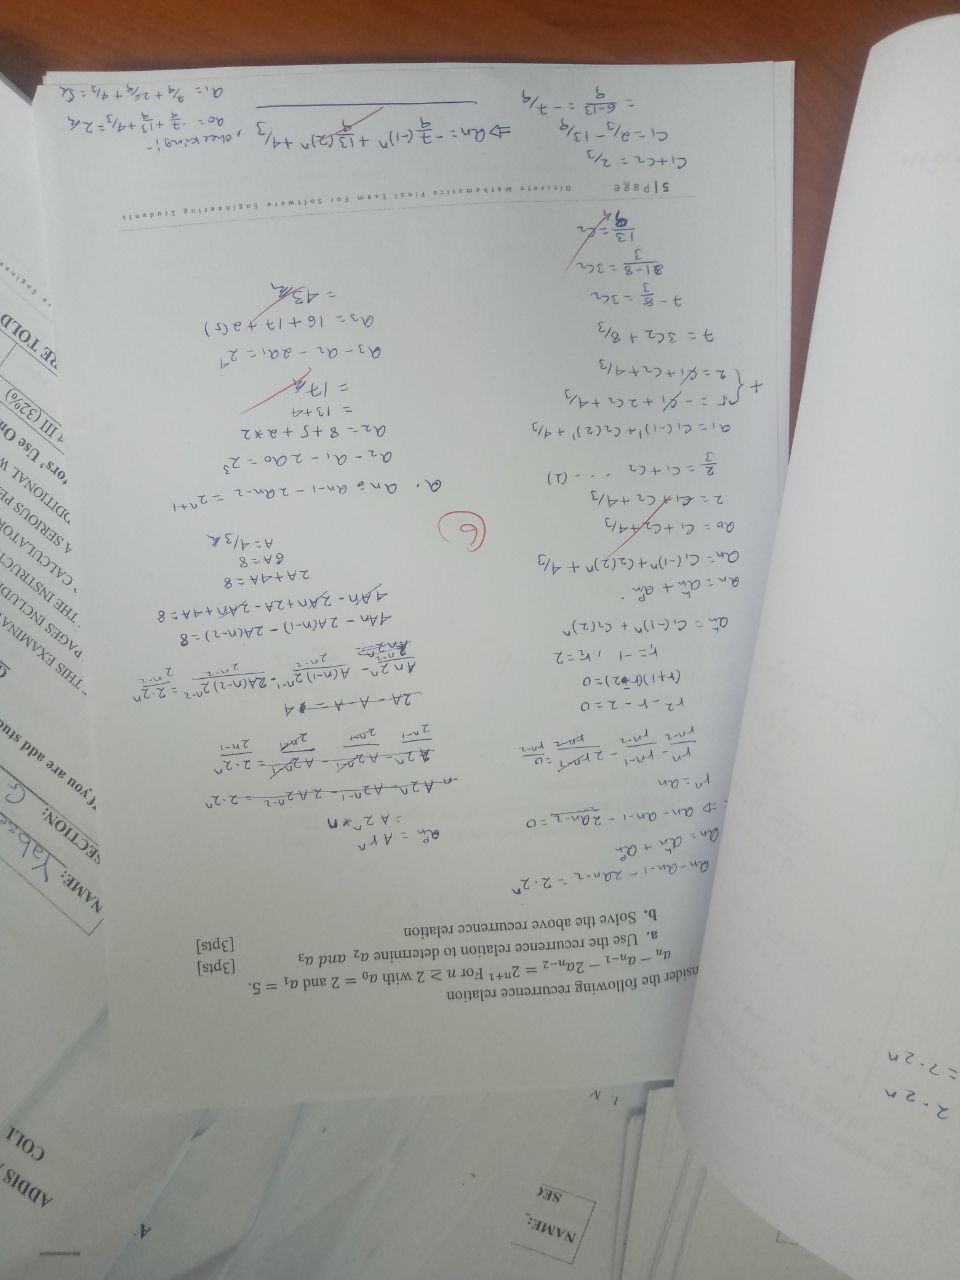 nsider the following recurrence relation
aₙ − aₙ₋₁ − 2aₙ₋₂ = 2ⁿ⁺¹ For n ≥ 2 with a₀ = 2 and a₁ = 5.
a. Use the recurrence relation to determine a₂ and a₃ [3pts]
b. Solve the above recurrence relation [3pts]
an - an-1 - 2an-2 = 2·2ⁿ
an = aʰn + aᵖn
⇒ an - an-1 - 2an-2 = 0
rⁿ = an
rⁿ/rⁿ⁻² - rⁿ⁻¹/rⁿ⁻² - 2rⁿ⁻²/rⁿ⁻² = 0
r² - r - 2 = 0
(r+1)(r-2) = 0
r₁ = -1, r₂ = 2
aʰn = C₁(-1)ⁿ + C₂(2)ⁿ
an = aʰn + aᵖn
an = C₁(-1)ⁿ + C₂(2)ⁿ + 4/3
a₀ = C₁ + C₂ + 4/3
2 = C₁ + C₂ + 4/3
2/3 = C₁ + C₂ --- (1)
a₁ = C₁(-1)¹ + C₂(2)¹ + 4/3
5 = -C₁ + 2C₂ + 4/3
2 = C₁ + C₂ + 4/3
+
7 = 3C₂ + 8/3
7 - 8/3 = 3C₂
21-8/3 = 3C₂
13/9 = C₂
aᵖn = Arⁿ
= A2ⁿ * n
A2ⁿ - A2ⁿ⁻¹ - 2A2ⁿ⁻² = 2·2ⁿ
2A - A - A = 4
An2ⁿ/2ⁿ⁻² - A(n-1)2ⁿ⁻¹/2ⁿ⁻² - 2A(n-2)2ⁿ⁻²/2ⁿ⁻² = 2·2ⁿ/2ⁿ⁻²
4An - 2A(n-1) - 2A(n-2) = 8
4An - 2An + 2A - 2An + 4A = 8
2A + 4A = 8
6A = 8
A = 4/3
6
a. an = an-1 - 2an-2 = 2ⁿ⁺¹
a₂ - a₁ - 2a₀ = 2³
a₂ = 8 + 5 + 2*2
= 13+4
= 17
a₃ - a₂ - 2a₁ = 2⁴
a₃ = 16 + 17 + 2(5)
= 43
5 | Page
Discrete Mathematics Final Exam For Software Engineering Students
C₁ + C₂ = 2/3
C₁ = 2/3 - 13/9
= 6-13/9 = -7/9
⇒ an = -7/9(-1)ⁿ + 13/9(2)ⁿ + 4/3
checking:-
a₀ = -7/9 + 13/9 + 4/3 = 2
a₁ = 7/9 + 26/9 + 4/3 = 5
2·2ⁿ
= 2·2ⁿ
NAME:
SEC
ADDIS
COLI
NAME:
Yabse
SECTION:
G
If you are add stud
"THIS EXAMINA
PAGES INCLUDI
THE INSTRUCT
CALCULATOR
A SERIOUS PE
DDITIONAL W
tors' Use On
+ III (32%)
RE TOLD